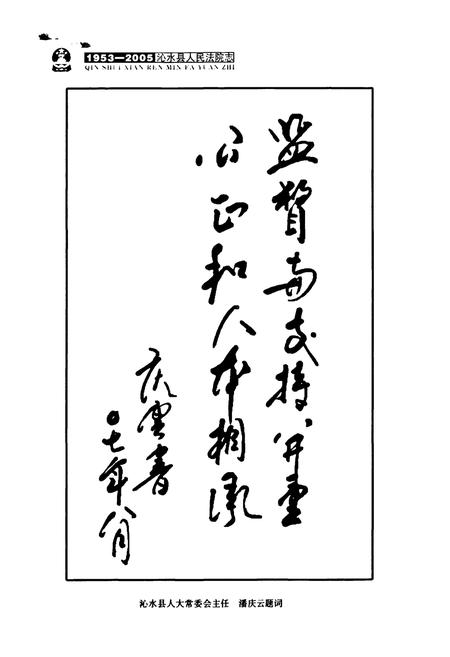 1953—2005沁水县人民法院志
QIN SHUI XIAN REN MIN FA YUAN ZHI
监督与支持并重
公正和人本相
庆云書
〇七年八月
沁水县人大常委会主任 潘庆云题词